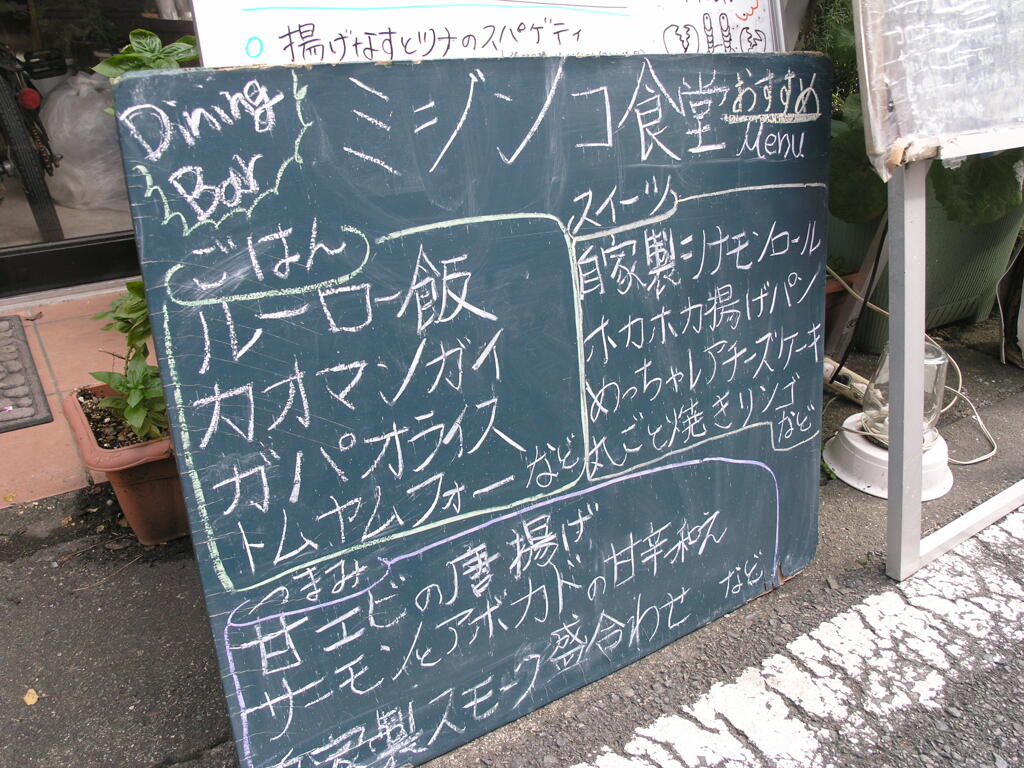 揚げなすとツナのスパゲティ
Dining
Bar
ミジンコ食堂
おすすめ
Menu
ごはん
ルーロー飯
カオマンガイ
ガパオライス
トムヤムフォー
など
スイーツ
自家製シナモンロール
ホカホカ揚げパン
めっちゃレアチーズケーキ
丸ごと焼きリンゴ
など
つまみ
甘エビの唐揚げ
サーモンとアボカドの甘辛和え
自家製スモーク盛合わせ
など